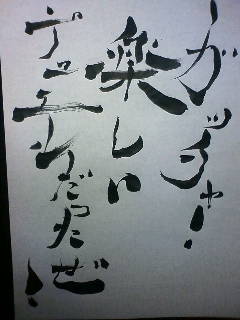 ガッチャ!
楽しい
デュエルだったぜ!